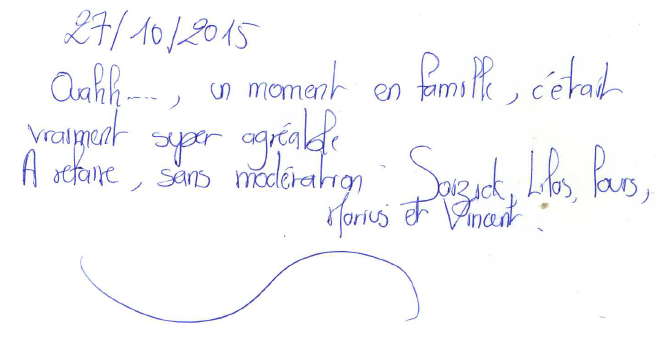 27/10/2015
Ouahh...., un moment en famille, c'était
vraiment super agréable
A refaire, sans modération Soizick, Lilas,
Marius et Vincent.